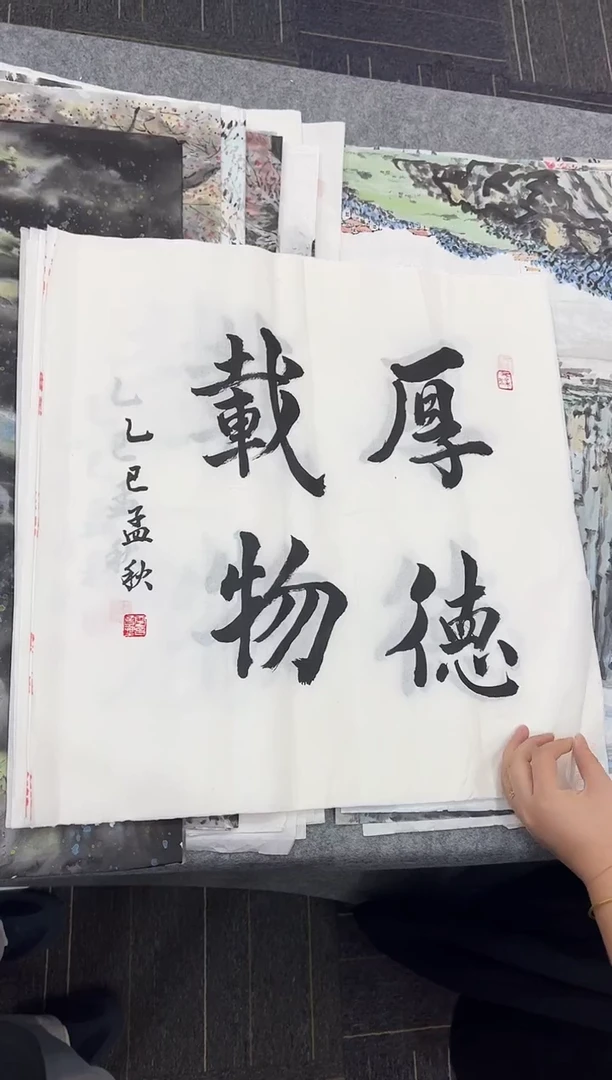 厚德
載物
乙巳孟秋